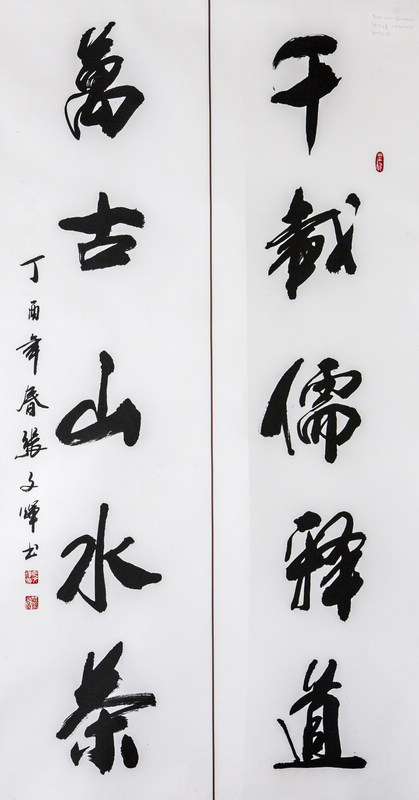 千載儒释道
萬古山水茶
丁酉年春張文暉书